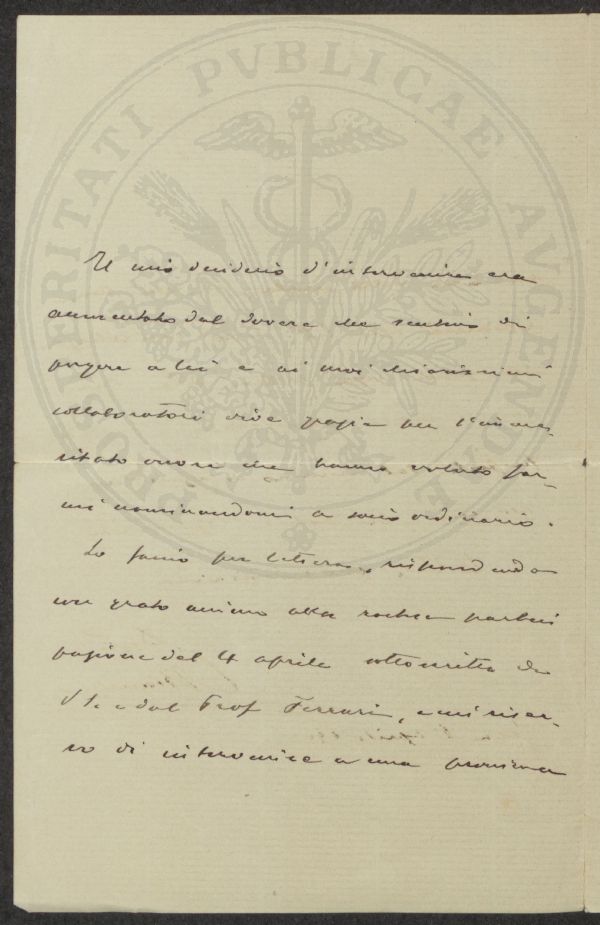 PRO PVBERITATI PVBLICAE AVGENDAE
Il mio desiderio d'intervenire era
aumentato dal dovere che sentivo di
porgere a Lei e ai suoi
collaboratori vive grazie per l'imme-
ritato onore che hanno voluto far-
mi nominandomi a socio ordinario.
Lo faccio per lettera, rispondendo
con grato animo alla parteci
pazione del 4 aprile sottoscritta da
e dal Prof Ferrari, e mi riser-
vo di intervenire a una prossima